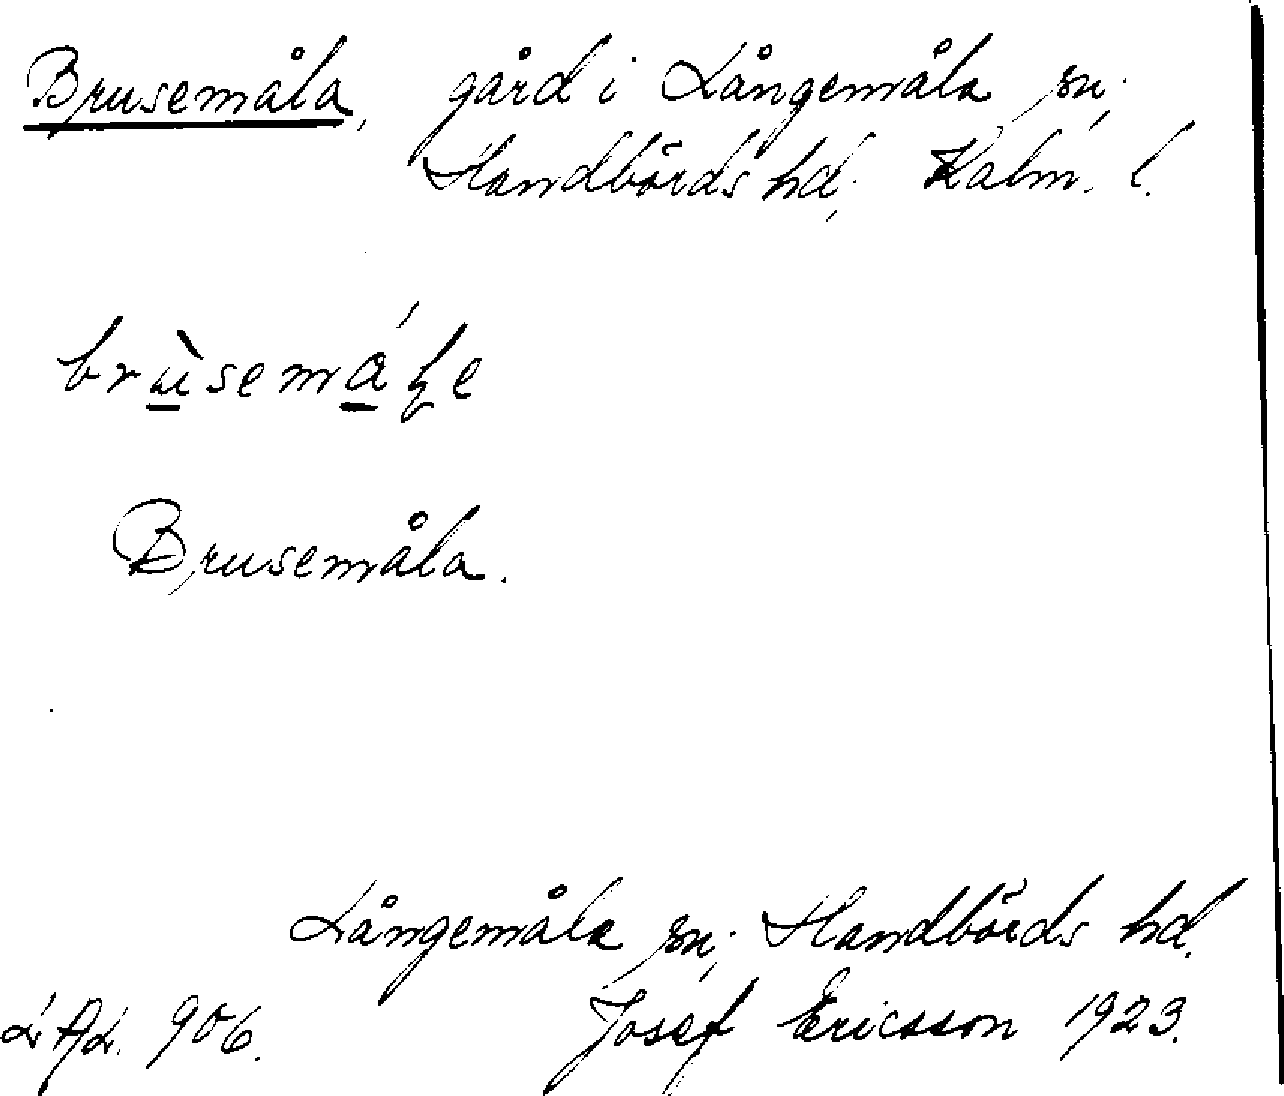 Brusemåla, gård i Långemåla sn,
Handbörds hd, Kalm. l.
brùsemáɬe
Brusemåla.
Långemåla sn, Handbörds hd.
906. Josef Ericsson 1923.